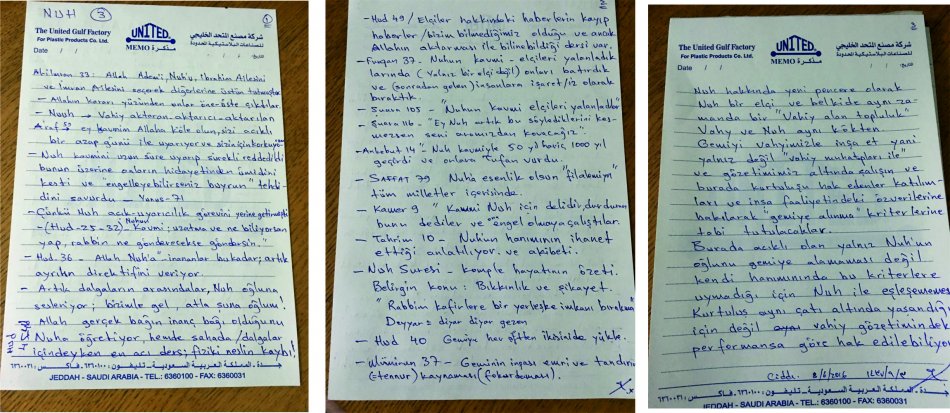 NUH (3)
1
The United Gulf Factory
For Plastic Products Co. Ltd.
UNITED
MEMO مذكرة
شركة مصنع المتحد الخليجي
للصناعات البلاستيكية المحدودة
Date / /
Aliimran 33: Allah Ademi, Nuh'u, İbrahim Ailesini
ve İmran Ailesini seçerek diğerlerine üstün tutmuştur
- Allahın kararı yüzünden onlar öne üste çıktılar
- Nuuh → Vahiy aktaran-aktarıcı-aktarılan
Araf 59 → ey kavmim Allaha köle olun, sizi acıklı
bir azap günü ile uyarıyor ve sizin için korkuyor
- Nuh kavmini uzun süre uyarıp sürekli reddedildi
bunun üzerine onların hidayetinden ümidini
kesti ve engelleyebilirseniz buyrun" tehdi
dini savurdu - Yunus-71
- Çünkü Nuh açık-uyarıcılık görevini yerine getirmişti
- (Hud-25-32) Nuhun Kavmi; uzatma ve ne biliyorsan
yap, rabbin ne gönderecekse göndersin."
- Hud.36 - Allah Nuh'a "inananlar bu kadar; artık
ayrılın direktifini veriyor.
- Artık dalgaların arasındalar, Nuh oğluna
sesleniyor; bizimle gel, atla suna oğlum!
Allah gerçek bağın inanç bağı olduğunu
Nuha öğretiyor, hemde sahada/dalgalar
içindeyken en acı ders; fiziki neslin kaybı!
HUD
JEDDAH - SAUDI ARABIA - TEL.: 6360100 - FAX: 6360031
2
- Hud 49/ Elçiler hakkındaki haberlerin kayıp
haberler/bizim bilmediğimiz olduğu ve ancak
Allahın aktarması ile bilinebildiği dersi var.
- Furqan 37- Nuhun kavmi - elçileri yalanladık
larında (Yalnız bir elçi değil) onları batırdık
ve (sonradan gelen) insanlara işaret/iz olarak
bıraktık.
- Şuara 105 - "Nuhun kavmi elçileri yalanladılar"
- Şuara 116 - "Ey Nuh artık bu söylediklerini kes-
mezsen seni aramızdan kovacağız"
- Ankebut 14 "Nuh kavmiyle 50 yıl hariç 1000 yıl
geçirdi ve onları Tufan vurdu.
- SAFFAT 79 Nuha esenlik olsun "filalemiyn"
tüm milletler içerisinde.
- Kamer 9 "Kavmi Nuh için delidir, durdurun
bunu dediler ve engel olmaya çalıştılar.
- Tahrim 10 - Nuhun hanımının ihanet
ettiği anlatılıyor. ve akibeti.
- Nuh Suresi - komple hayatının özeti.
Belirgin konu: Bıkkınlık ve şikayet.
"Rabbim kafirlere bir yerleşke imkanı bırakma"
Deyyar = diyar diyar gezen
- Hud 40 Gemiye her çiften ikisinide yükle.
- Müminun 37 - Geminin inşası emri ve tandırın
(ettennur) kaynaması (fokurdaması).
3
The United Gulf Factory
For Plastic Products Co. Ltd.
UNITED
MEMO مذكرة
شركة مصنع المتحد الخليجي
للصناعات البلاستيكية المحدودة
Date / /
Nuh hakkında yeni pencere olarak
Nuh bir elçi, ve belkide aynı za-
manda bir "Vahiy alan topluluk"
Vahy ve Nuh aynı kökten
Gemiyi vahyimizle inşa et yani
yalnız değil "vahiy muhatapları ile"
ve gözetimimiz altında çalışın ve
burada kurtuluşu hak edenler katılım-
ları ve inşa faaliyetindeki özverilerine
bakılarak "gemiye alınma" kriterlerine
tabi tutulacaklar.
Burada acıklı olan yalnız Nuh'un
oğlunu gemiye alamaması değil
kendi hanımında bu kriterlere
uymadığı için Nuh ile eşleşememesi
Kurtuluş aynı çatı altında yaşandığı
için değil vahiy gözetiminde
performansa göre hak edilebiliyor
Cidde 8/6/2016
JEDDAH - SAUDI ARABIA - TEL.: 6360100 - FAX: 6360031